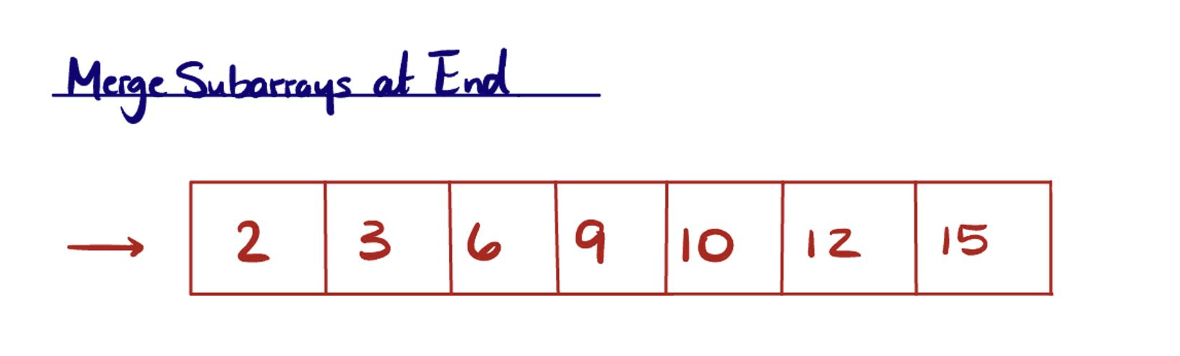 Merge Subarrays at End
→ 2 3 6 9 10 12 15